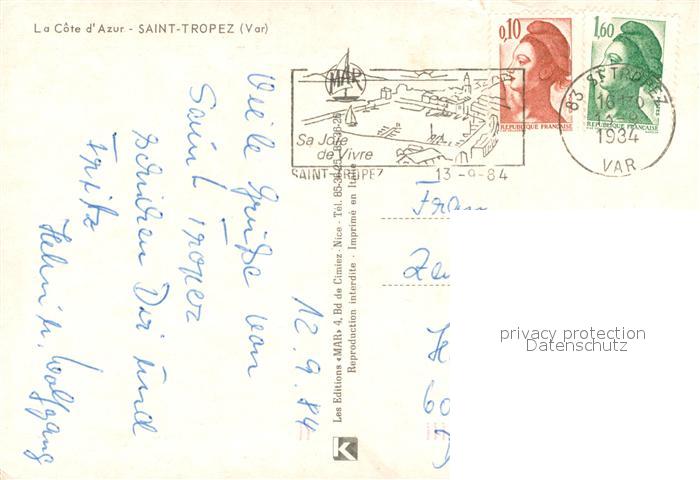 La Côte d'Azur - SAINT-TROPEZ (Var)
Viele Grüße von
Saint Tropez
schicken Dir und
Fritz
Helmi u. Wolfgang
12.9.84
Les Editions «MAR» 4, Bd de Cimiez - Nice - Tél. 85-36-25
Reproduction interdite - Imprimé en Italie
K
MAR
Sa Joie
de Vivre
SAINT-TROPEZ
13-9-84
0,10
REPUBLIQUE FRANÇAISE
1,60
REPUBLIQUE FRANÇAISE
83 ST TROPEZ
1984
VAR
Frau
60
privacy protection
Datenschutz